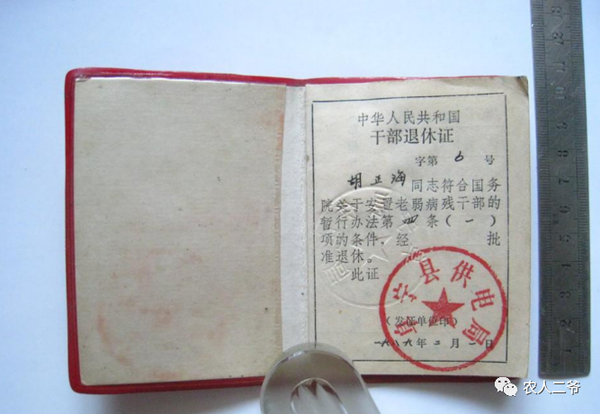 中华人民共和国
干部退休证
字第 6 号
胡正海同志符合国务
院关于安置老弱病残干部的
暂行办法第四条(一)
项的条件,经 批
准退休。
此证
县供电局
(发证单位印)
一九八九年二月一日
农人二爷